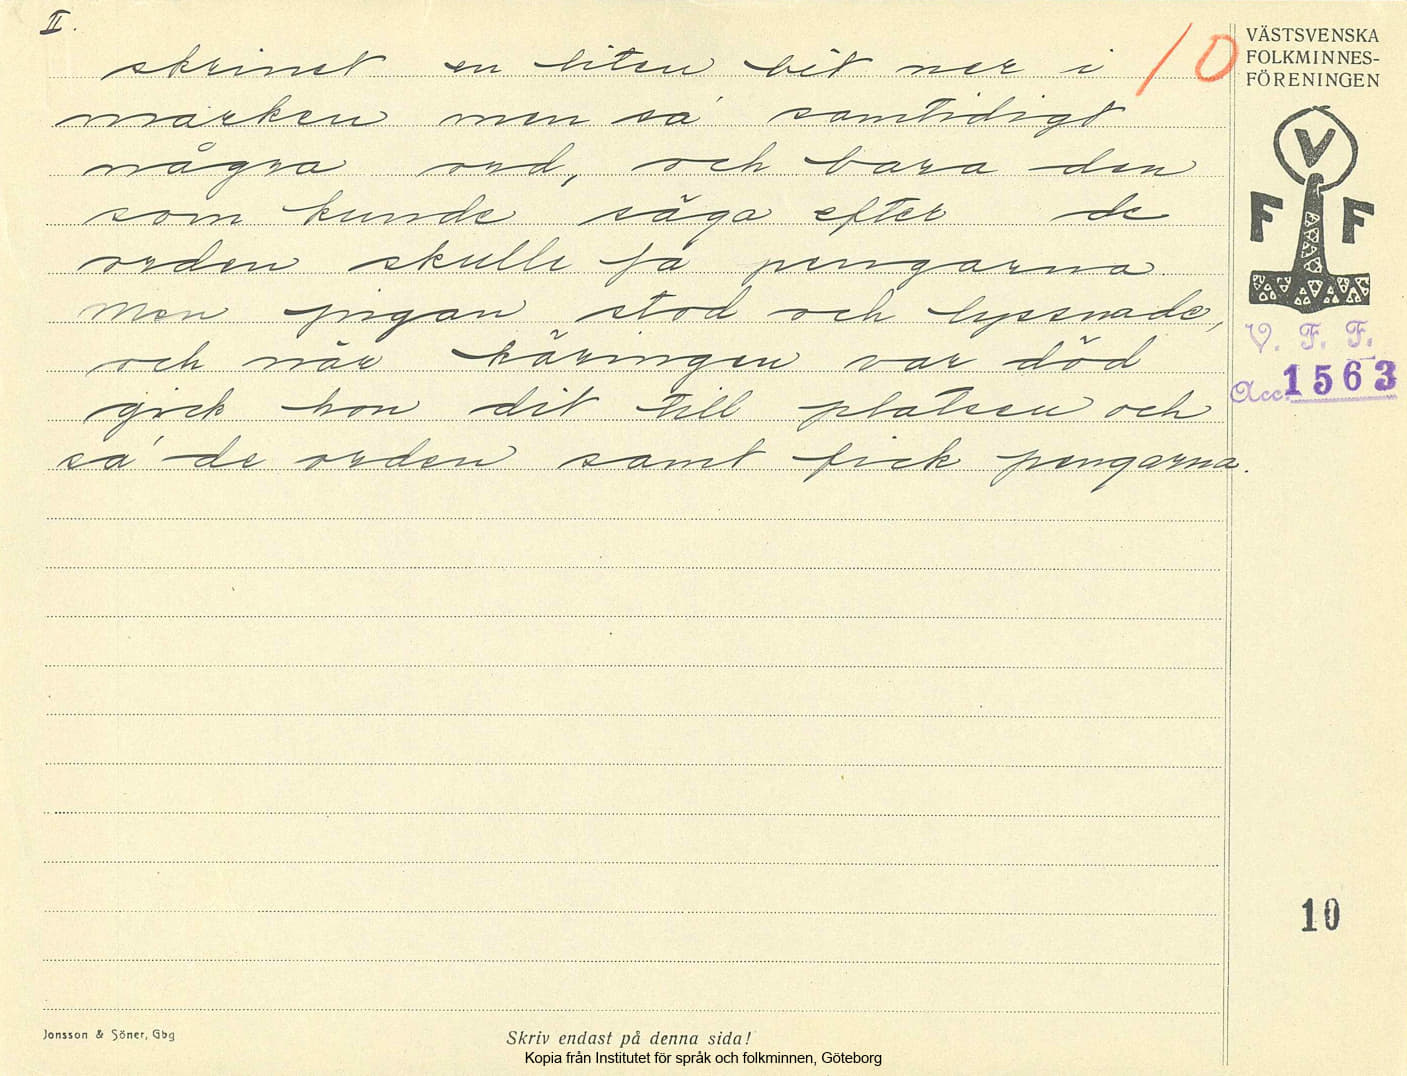 II.
10
skrinet en liten bit ner i
marken men sa' samtidigt
några ord, och bara den
som kunde säga efter de
orden skulle få pengarna.
Men pigan stod och lyssnade,
och när käringen var död
gick hon dit till platsen och
sa' de orden samt fick pengarna.
VÄSTSVENSKA
FOLKMINNES-
FÖRENINGEN
V
F F
V. F. F.
Acc. 1563
10
Jonsson & Söner, Gbg
Skriv endast på denna sida!
Kopia från Institutet för språk och folkminnen, Göteborg